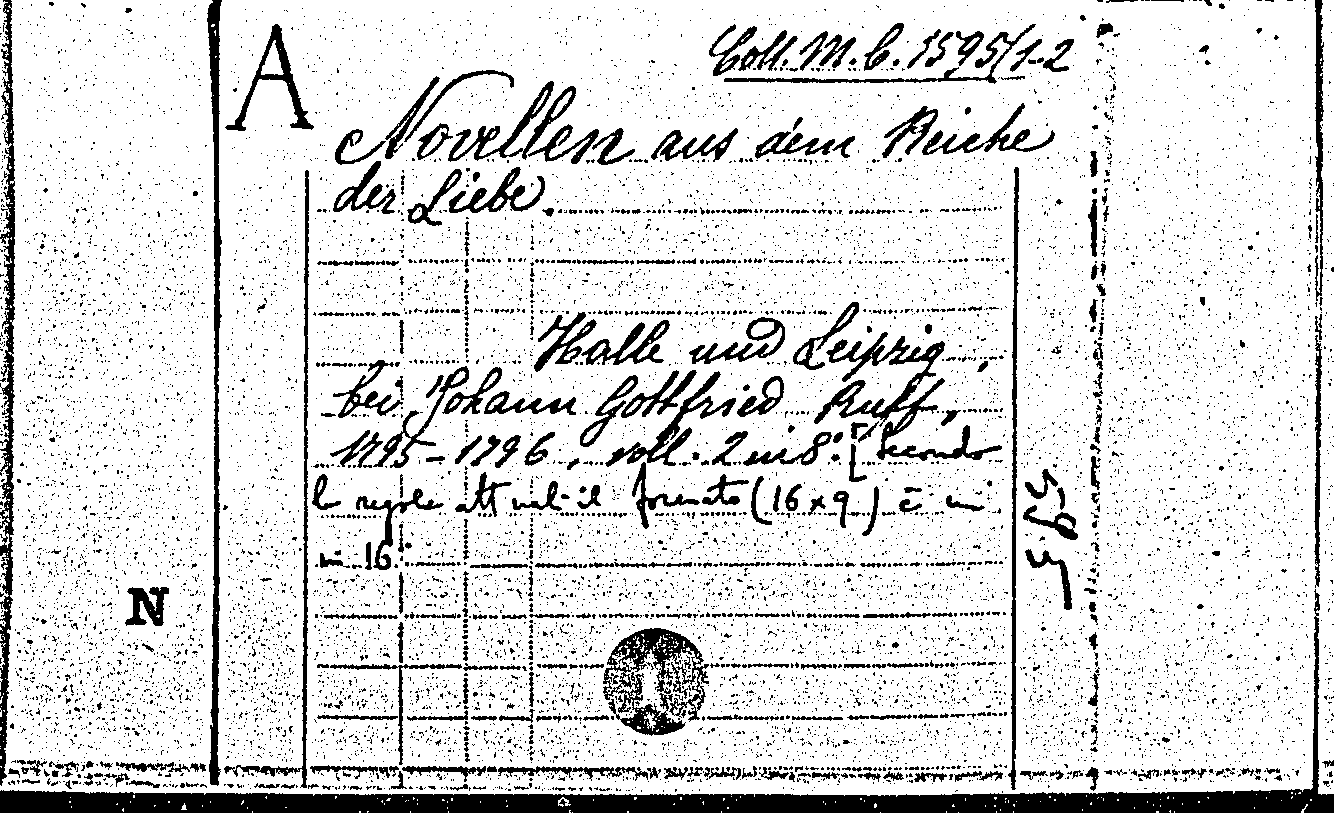 A
Coll. M. C. 1595/1-2
Novellen aus dem Reiche
der Liebe.
Halle und Leipzig,
bei Johann Gottfried Ruff,
1795-1796, voll. 2 in 8°. [Secondo
le regole attuali il formato (16x9) è
in 16°.
N